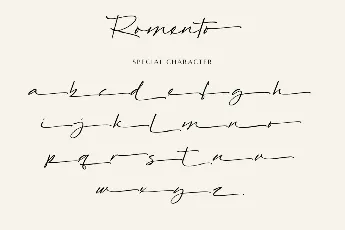 Romento
SPECIAL CHARACTER
a b c d e f g h
i j k l m n o
p q r s t u v
w x y z